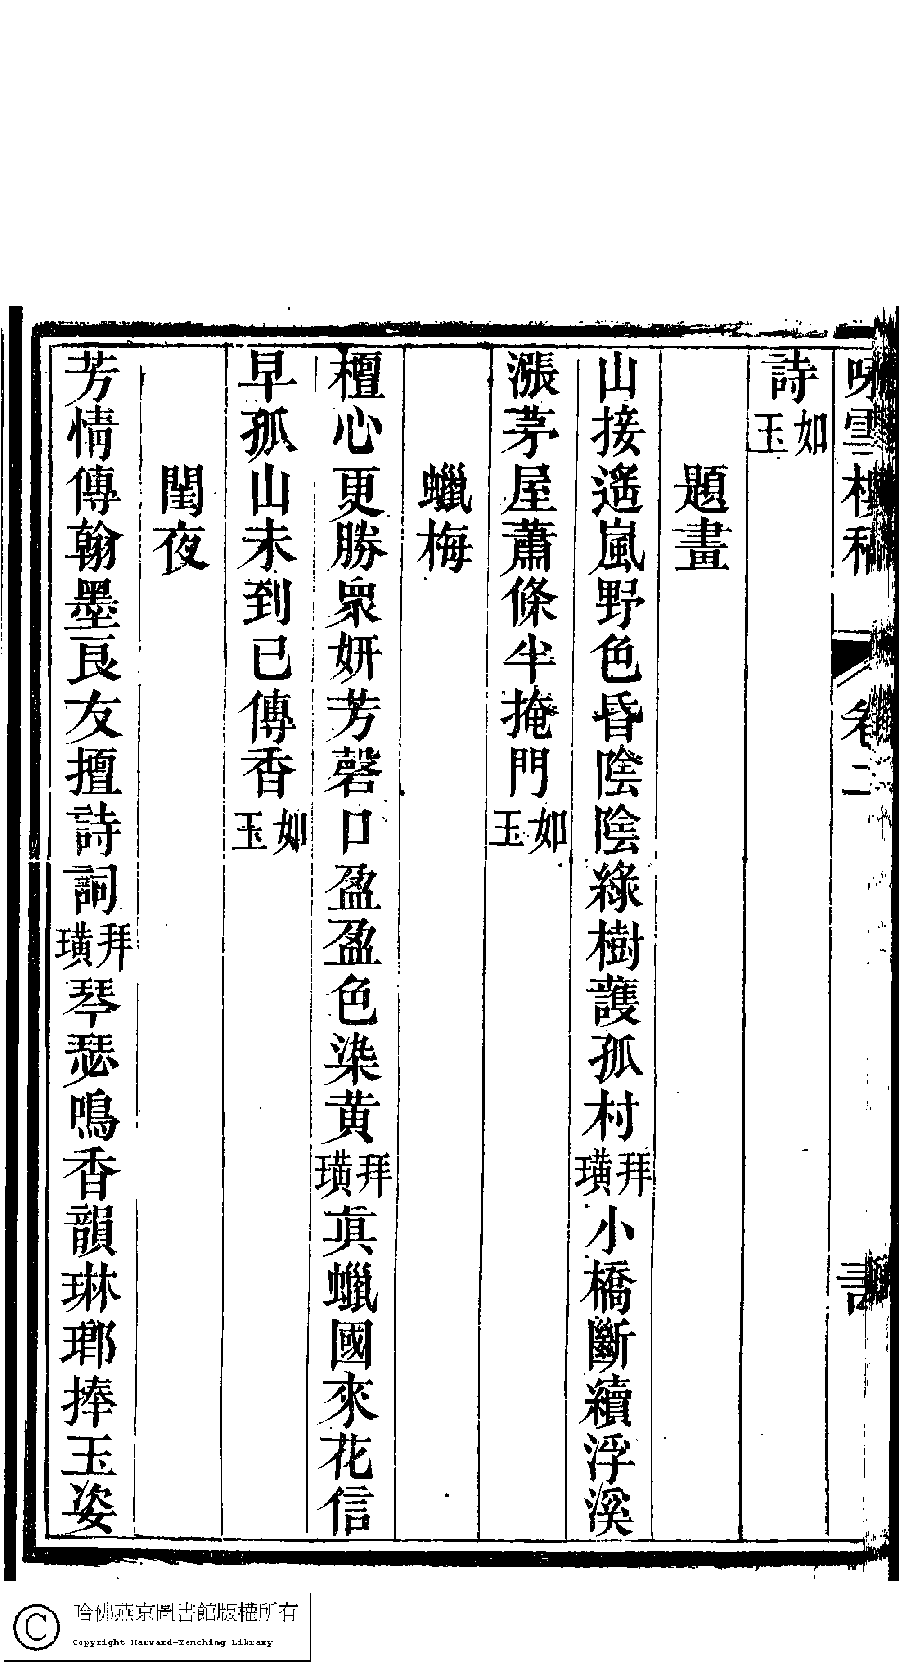 詩如玉
題畫
山接遙嵐野色昏陰陰綠樹護孤村拜璜小橋斷續浮溪
漲茅屋蕭條半掩門如玉
蠟梅
檀心更勝衆妍芳磬口盈盈色染黃拜璜真蠟國來花信
早孤山未到已傳香如玉
閨夜
芳情傳翰墨良友擅詩詞拜璜琴瑟鳴香韻琳瑯捧玉姿
哈佛燕京圖書館版權所有
Copyright Harvard-Yenching Library